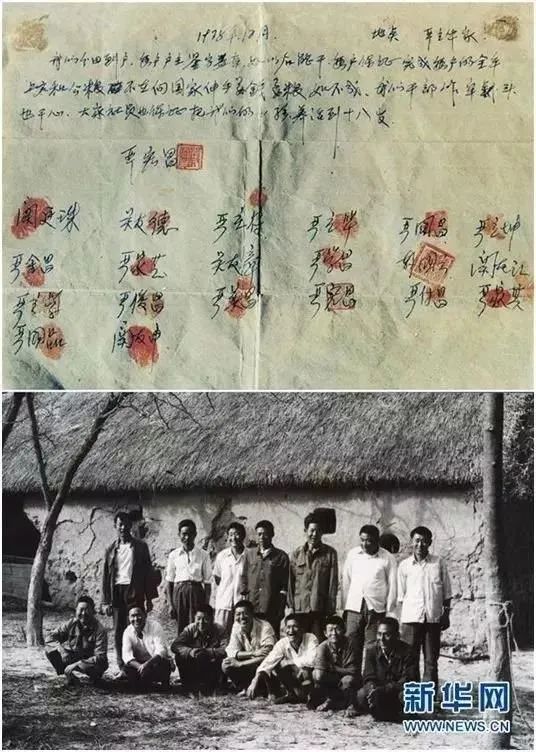 1978年12月. 地点 严立华家
我们分田到户,每户户主签字盖章,如以后能干,每户保证完成每户的全年
上交和公粮,不在向国家伸手要钱要粮,如不成,我们干部作牢杀头
也干心,大家社员也保证把我们的小孩养活到十八岁
严宏昌
关廷珠 关友德 严立符 严立华 严国昌 严立坤
严金昌 严家芝 关友章 严学昌 韩国云 关友江
严立学 严俊昌 严美昌 严宏昌 严付昌 严家其
严国品 关友申
新华网
WWW.NEWS.CN